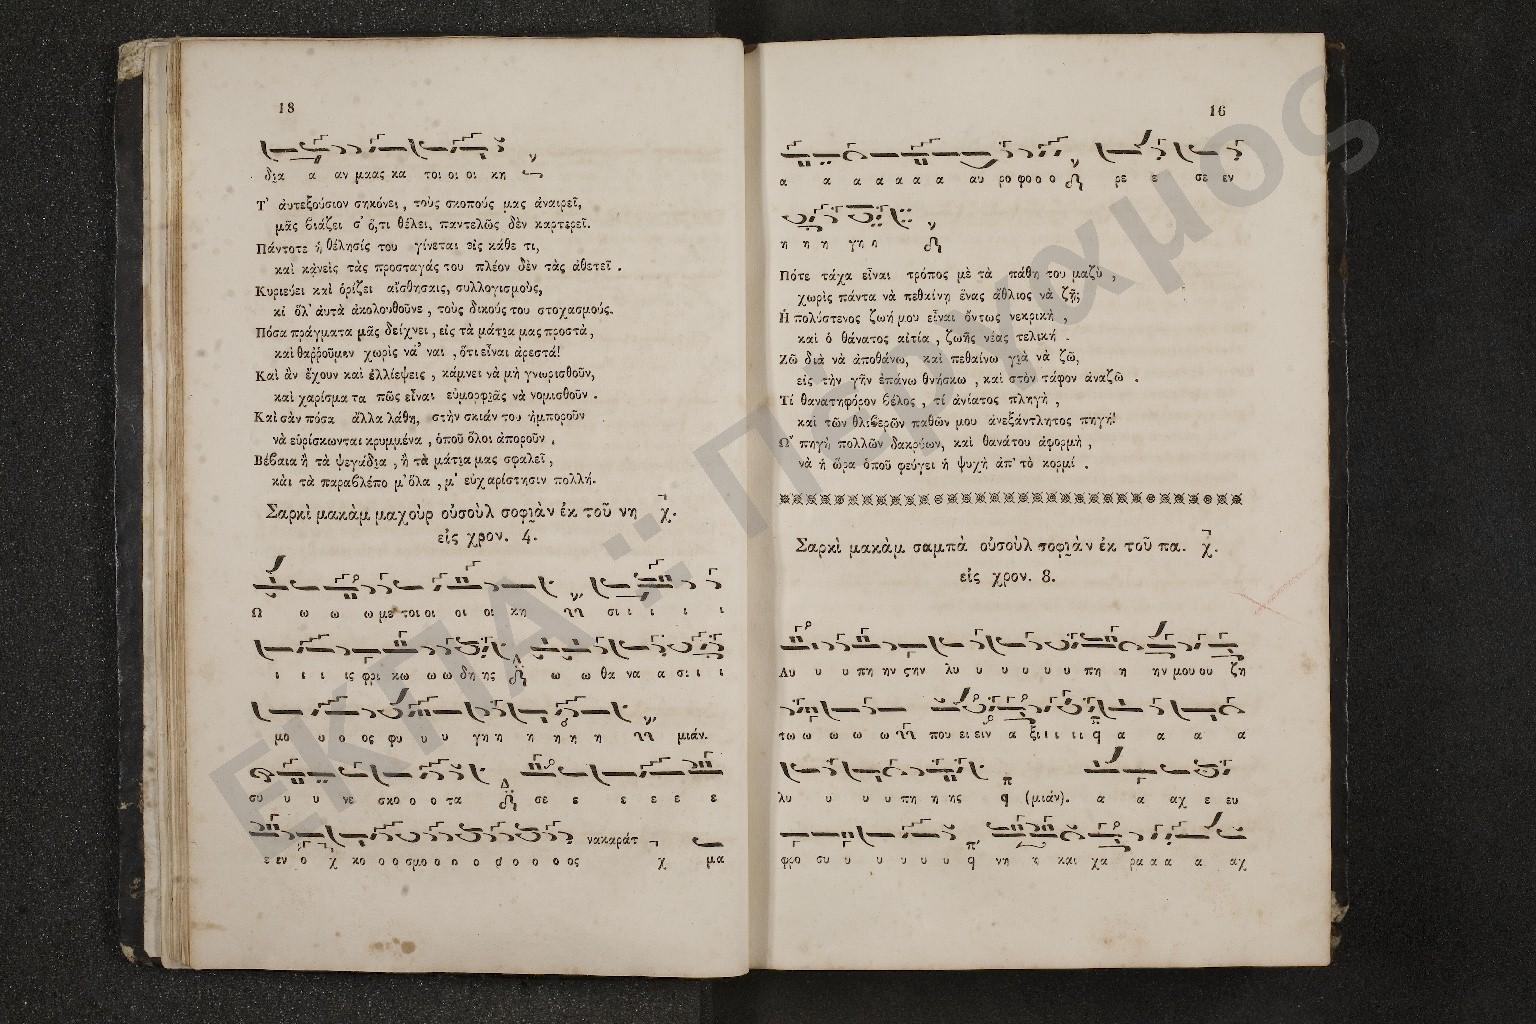 18
δια α αν μκας κα τοι οι οι κη
Τ' ἀυτεξούσιον σηκόνει, τοὺς σκοπούς μας ἀναιρεῖ,
μᾶς βιάζει σ' ὅ,τι θέλει, παντελῶς δὲν καρτερεῖ.
Πάντοτε ἡ θέλησίς του γίνεται εἰς κάθε τι,
καὶ κἀνεὶς τὰς προσταγάς του πλέον δὲν τὰς ἀθετεῖ.
Κυριεύει καὶ ὁρίζει αἴσθησαις, συλλογισμούς,
κι ὅλ' ἀυτὰ ἀκολουθοῦνε, τοὺς δικούς του στοχασμούς.
Πόσα πράγματα μᾶς δείχνει, εἰς τὰ μάτια μας προστὰ,
καὶ θαῤῥοῦμεν χωρὶς νά' ναι, ὅτι εἶναι ἀρεστά!
Καὶ ἂν ἔχουν καὶ ἐλλίεψεις, κάμνει νὰ μὴ γνωρισθοῦν,
καὶ χαρίσμα τα πῶς εἶναι εὐμορφιᾶς νὰ νομισθοῦν.
Καὶ σὰν πόσα ἄλλα λάθη, στὴν σκιάν του ἠμποροῦν
νὰ εὑρίσκωνται κρυμμένα, ὁποῦ ὅλοι ἀποροῦν.
Βέβαια ἢ τὰ ψεγάδια, ἢ τὰ μάτια μας σφαλεῖ,
κὰι τὰ παραβλέπο μ' ὅλα, μ' εὐχαρίστησιν πολλή.
Σαρκὶ μακὰμ μαχοὺρ οὐσοὺλ σοφιὰν ἐκ τοῦ νη χ.
εἰς χρον. 4.
Ω ω ω ω με τοι οι οι οι κη σι ι ι ι ι
ι ι ι ις φρι κω ω ω δη ης ω ω θα να α σι ι ι
μο υ ο ος φυ υ υ γη η η η η μιάν.
συ υ υ νε σκο ο ο τα σε ε ε ε ε ε
νακαράτ
ε εν ο χ κο ο ο σμο ο ο ο ο ο ο ο ος χ μα
16
α α α α α α αυ ρο φο ο ο ρε ε σε εν
η η η γη η
Πότε τάχα εἶναι τρόπος μὲ τὰ πάθη του μαζὺ,
χωρὶς πάντα νὰ πεθαίνη ἕνας ἄθλιος νὰ ζῇ;
Ἡ πολύστενος ζωή μου εἶναι ὄντως νεκρικὴ,
καὶ ὁ θάνατος αἰτία, ζωῆς νέας τελική.
Ζῶ διὰ νὰ ἀποθάνω, καὶ πεθαίνω γιὰ νὰ ζῶ,
εἰς τὴν γῆν ἐπάνω θνήσκω, καὶ στὸν τάφον ἀναζῶ.
Τί θανατηφόρον βέλος, τί ἀνίατος πληγὴ,
καὶ τῶν θλιβερῶν παθῶν μου ἀνεξάντλητος πηγή!
Ω῏ πηγὴ πολλῶν δακρύων, καὶ θανάτου ἀφορμὴ,
νὰ ἡ ὥρα ὁποῦ φεύγει ἡ ψυχὴ ἀπ' τὸ κορμί.
Σαρκὶ μακὰμ σαμπὰ οὐσοὺλ σοφιὰν ἐκ τοῦ πα. χ.
εἰς χρον. 8.
Λυ υ υ πη ην ςην λυ υ υ υ υ υ πη η ην μου ου ζη
τω ω ω ω ω που ει ειν α ξι ι ι ι q α α α α
λυ υ υ υ πη η ης q (μιάν). α α αχ ε ευ
φρο συ υ υ υ υ υ q νη η και χα ρα α α α αχ